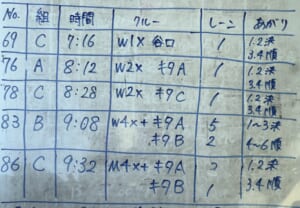 No. 組 時間 クルー レーン あがり
69 C 7:16 W1X 谷口 1 1.2決
3.4順
76 A 8:12 W2X キタA 1 1.2決
3.4順
78 C 8:28 W2X キタC 1 1.2決
3.4順
83 B 9:08 W4X+ キタA 5 1~3決
キタB 2 4~6順
86 C 9:32 M4X+ キタA 2 1.2決
キタB 1 3.4順